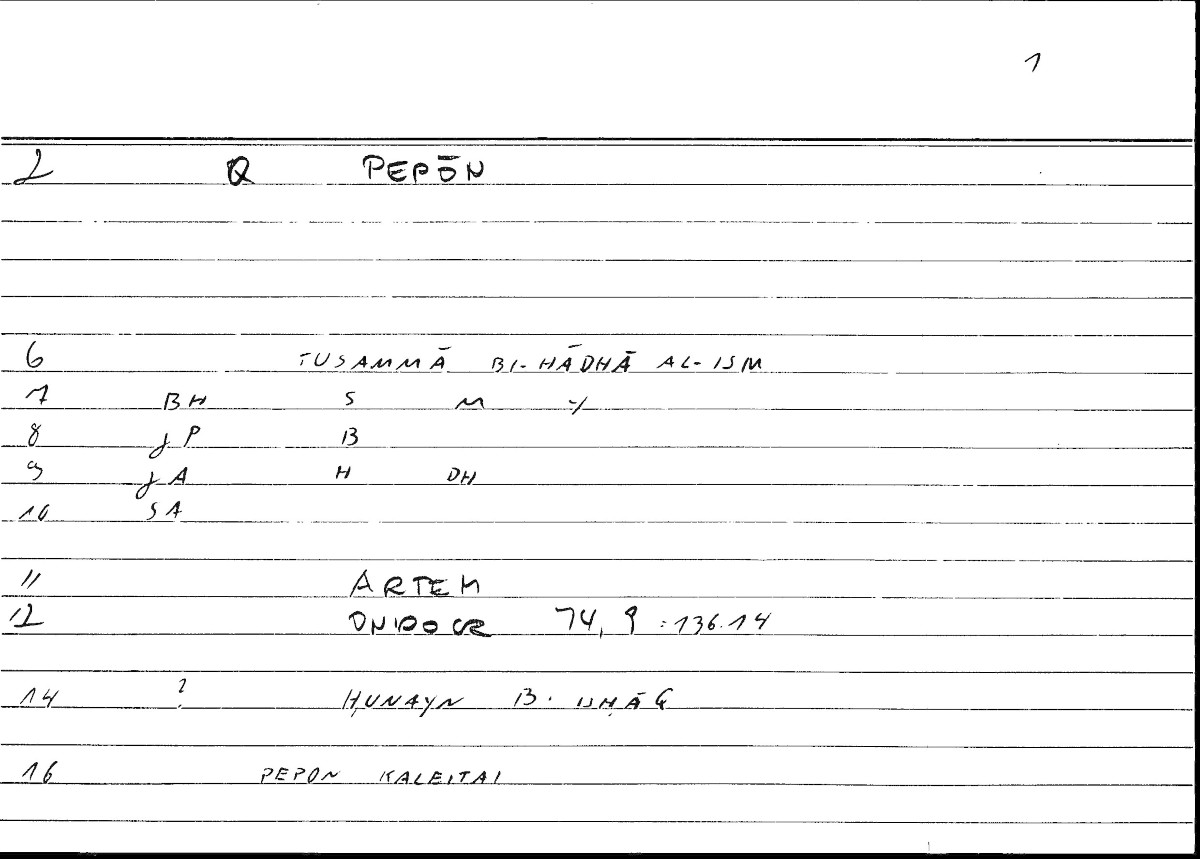 1
2 Q PEPŌN
6 TUSAMMĀ BI-HĀDHĀ AL-ISM
7 BH S M Y
8 J P B
9 J A H DH
10 S A
11 ARTEM
12 ONIROCR 74, 9 : 136.14
14 ? ḤUNAYN B. ISḤĀQ
16 PEPON KALEITAI